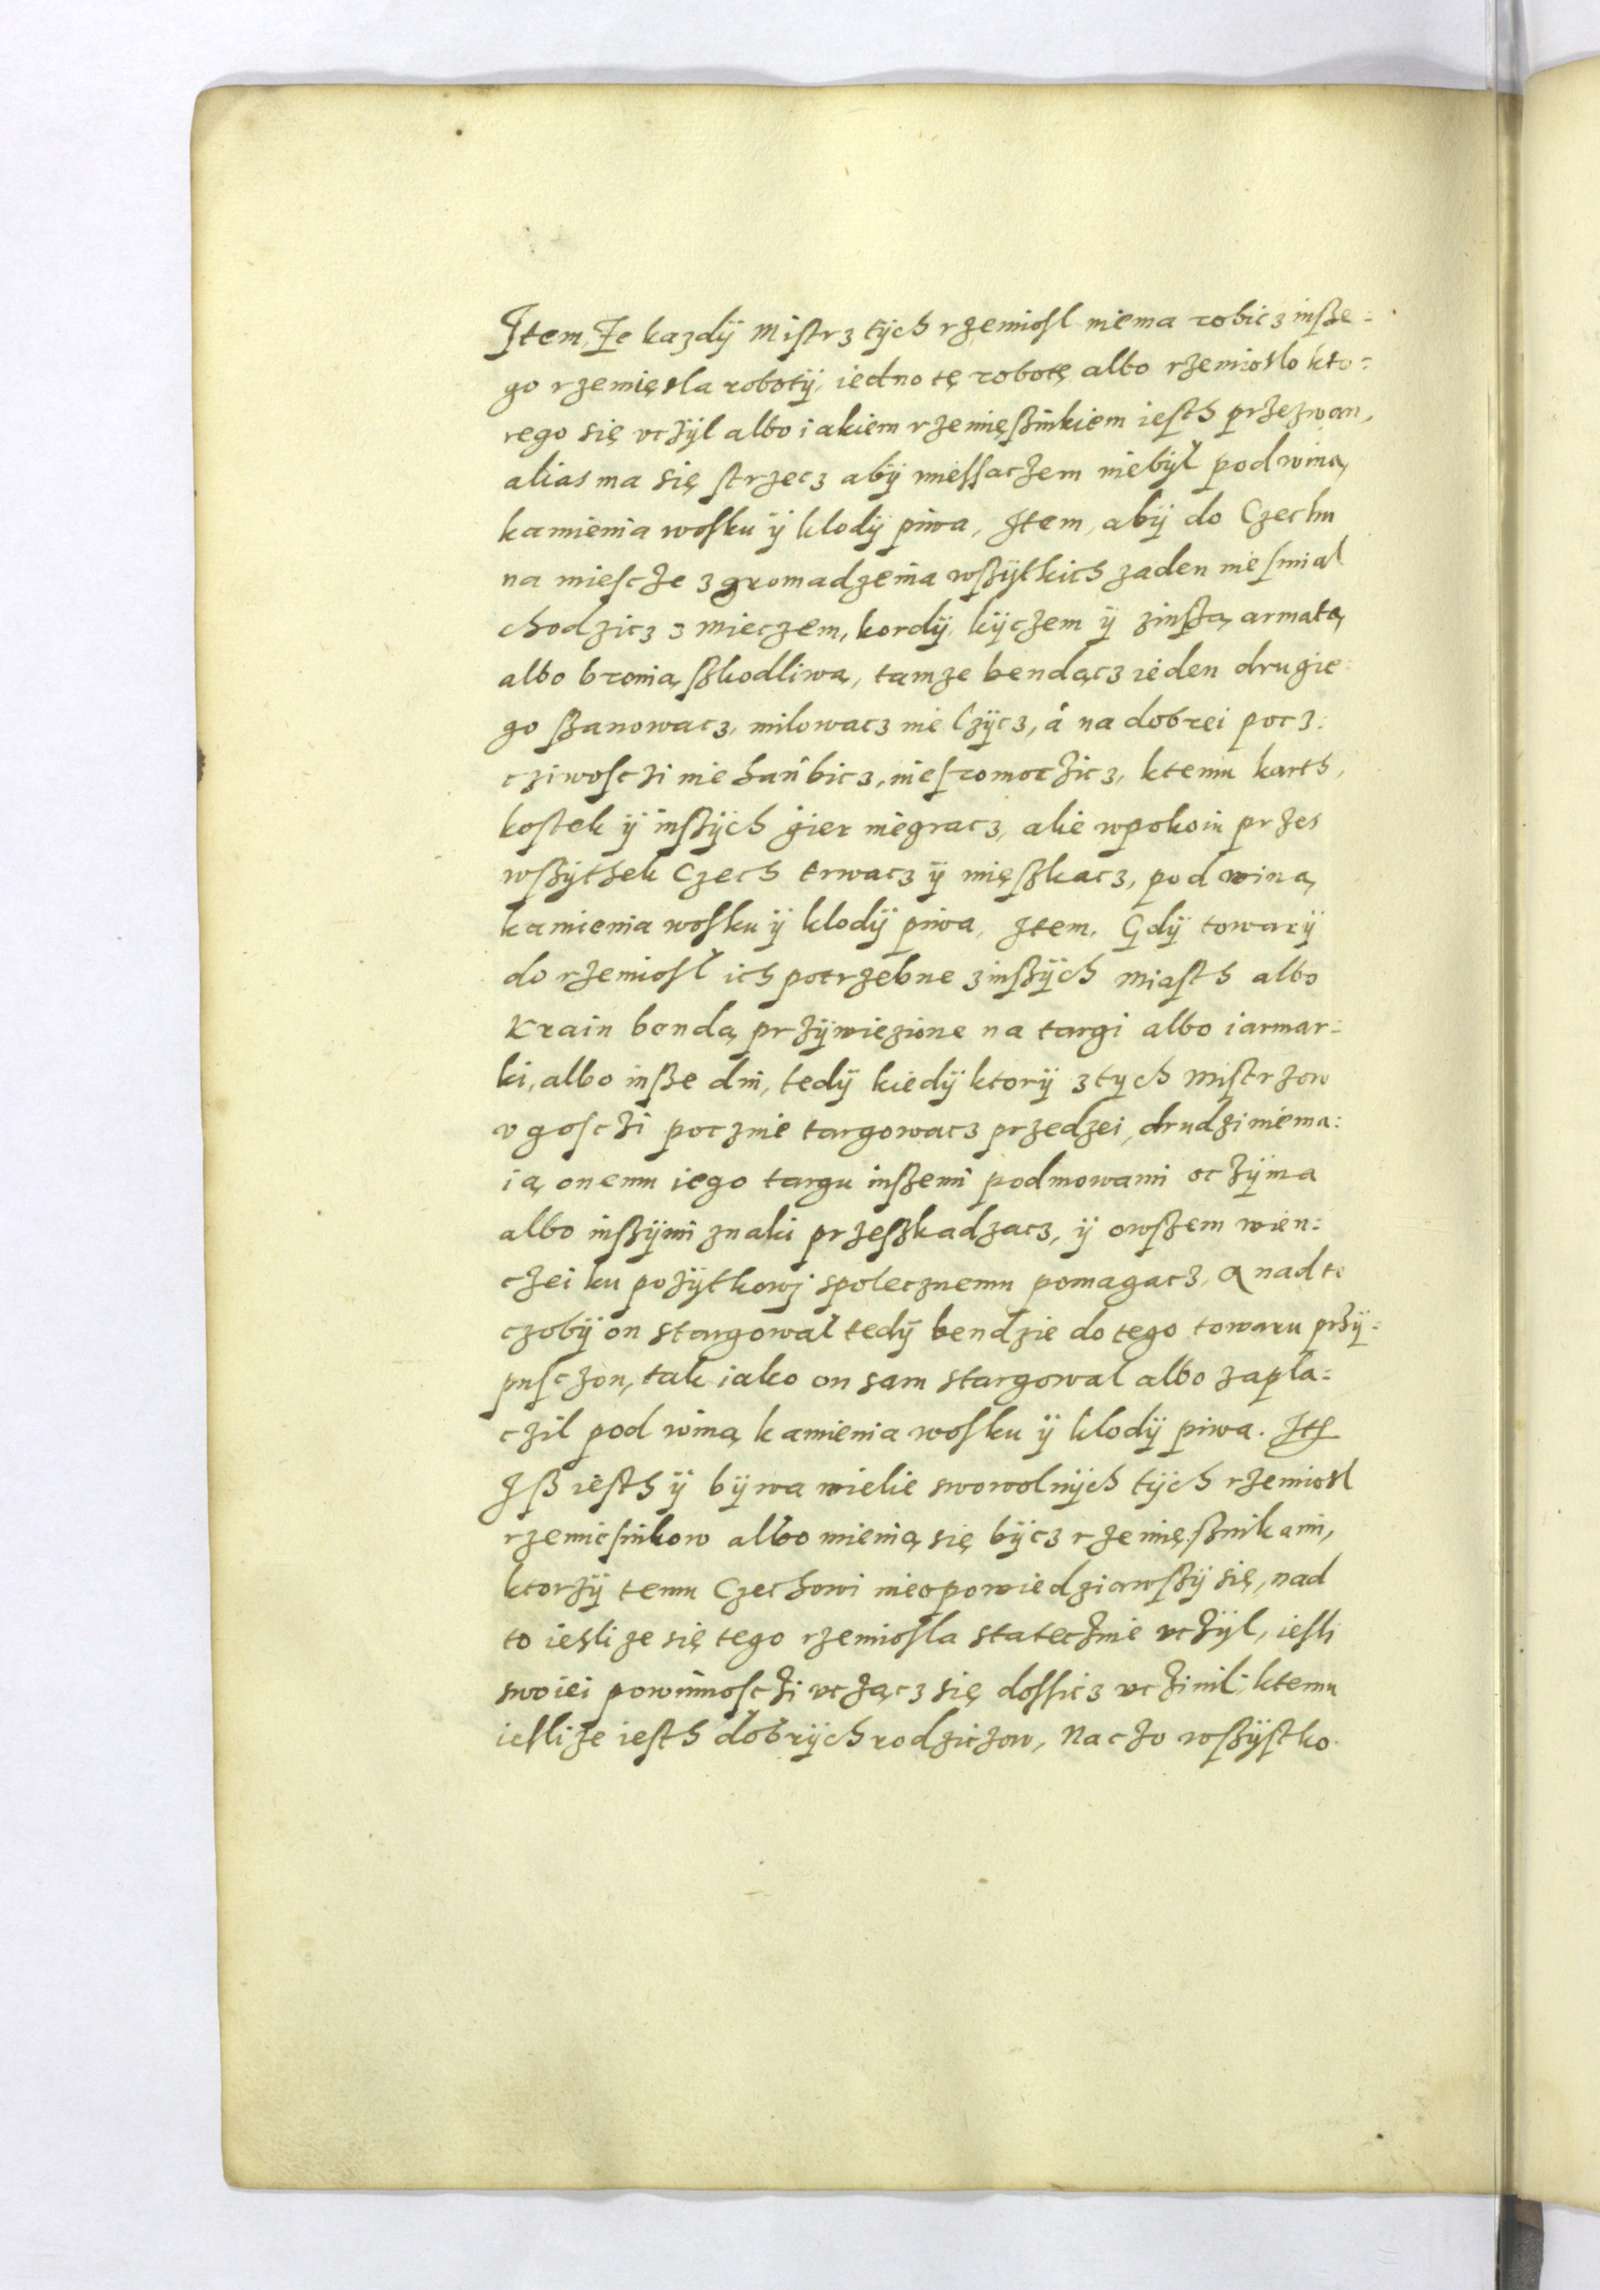 Item, Ze kazdÿ Mistrz tÿch rzemiosl niema robicz insze=
go rzemięsla robotÿ, iedno tę robotę albo rzemioslo kto=
rego się vczÿl albo iakiem rzemięsznikiem iesth przezwan,
alias ma się strzecz abÿ miessaczem niebÿł pod winą
kamienia wosku ÿ klodÿ piwa, Item, abÿ do Czechu
na miescze zgromadzenia wszÿtkich zaden niesmial
chodzicz z mieczem, kordÿ, kÿczem ÿ zinszą armatą
albo bronią szkodliwą, tamze bendącz ieden drugie=
go szanowacz, milowacz nie lzÿcz, á na dobrei pocz=
cziwosczi nie hańbicz, niesromoczicz, ktemu karth,
kostek ÿ inszÿch gier niegracz, alie wpokoiu przes
wszÿthek Czech trwacz ÿ mięszkacz, pod winą
kamienia wosku ÿ klodÿ piwa, Item. Gdÿ towarÿ
do rzemiosł ich potrzebne zinszÿch Miasth albo
Krain bendą przÿwiezione na targi albo iarmar=
ki, albo insze dni, tedÿ kiedÿ ktorÿ ztych Mistrzow
v gosczi pocznie targowacz przedzei, drudzi niema=
ią onemu iego targu inszemi podmowami oczÿma
albo inszÿmi znaki przeszkadzacz, ÿ owszem wien=
czei ku pozÿtkowj spolecznemu pomagacz, A nad to
czobÿ on stargowal tedÿ bendzie do tego towaru przÿ=
pusczon, tak iako on sam stargowal albo zapla=
czil pod winą kamienia wosku ÿ klodÿ piwa. Itę
Isz iesth ÿ bÿwa wielie swowolnÿch tÿch rzemiosl
rzemiesnikow albo mienią się bÿcz rzemięsznikami,
ktorzÿ temu Czechowi nieopowiedziawszÿ się, nad
to iesli ze się tego rzemiosla statecznie vczÿl, iesli
swoiei powinnosczi vcząc się dossicz vczinil, ktemu
ieslize iesth dobrÿch rodziczow, Na czo wszÿstko